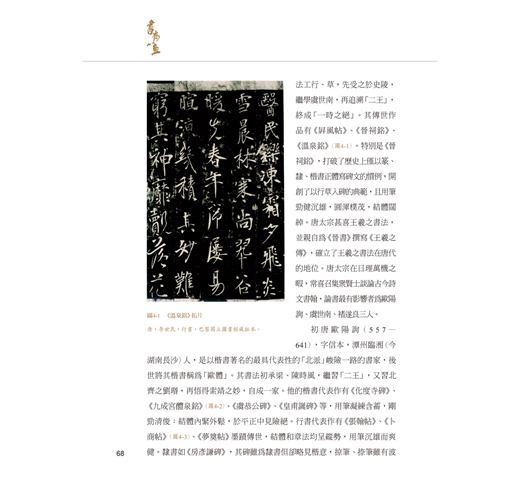 醫民鑠凍霜夕飛炎
雪晨林寒尚翠谷
暖先春年序屢易
暄涼幾積其妙難
窮其神靡賾落花
圖4-1　《温泉銘》拓片
唐，李世民，行書，巴黎國立圖書館藏拓本。
法工行、草，先受之於史陵，
繼學虞世南，再追溯「二王」，
終成「一時之絕」。其傳世作
品有《屏風帖》、《晉祠銘》、
《溫泉銘》（圖4-1）。特別是《晉
祠銘》，打破了歷史上僅以篆、
隸、楷書正體寫碑文的慣例，開
創了以行草入碑的典範，且用筆
勁健沉雄，圓渾樸茂，結體闊
綽。唐太宗甚喜王羲之書法，
並親自爲《晉書》撰寫《王羲之
傳》，確立了王羲之書法在唐代
的地位。唐太宗在日理萬機之
暇，常喜召集衆賢士談論古今詩
文書翰，論書最有影響者爲歐陽
詢、虞世南、褚遂良三人。
初唐歐陽詢（557—
641），字信本，潭州臨湘（今
湖南長沙）人，是以楷書著名的最具代表性的「北派」峻險一路的書家，後
世將其楷書稱爲「歐體」。其書法初承梁、陳時風，繼習「二王」，又習北
齊之劉珉，再悟得索靖之妙，自成一家。他的楷書代表作有《化度寺碑》、
《九成宮醴泉銘》（圖4-2）、《虞恭公碑》、《皇甫誕碑》等，用筆凝練含蓄，剛
勁清俊；結體內緊外鬆，於平正中見險絕。行書代表作有《張翰帖》、《卜
商帖》（圖4-3）、《夢奠帖》墨蹟傳世，結體和章法均呈縱勢，用筆沉雄而爽
健。隸書如《房彥謙碑》，其碑雖爲隸書但卻略見楷意，掠筆、捺筆雖有波
68